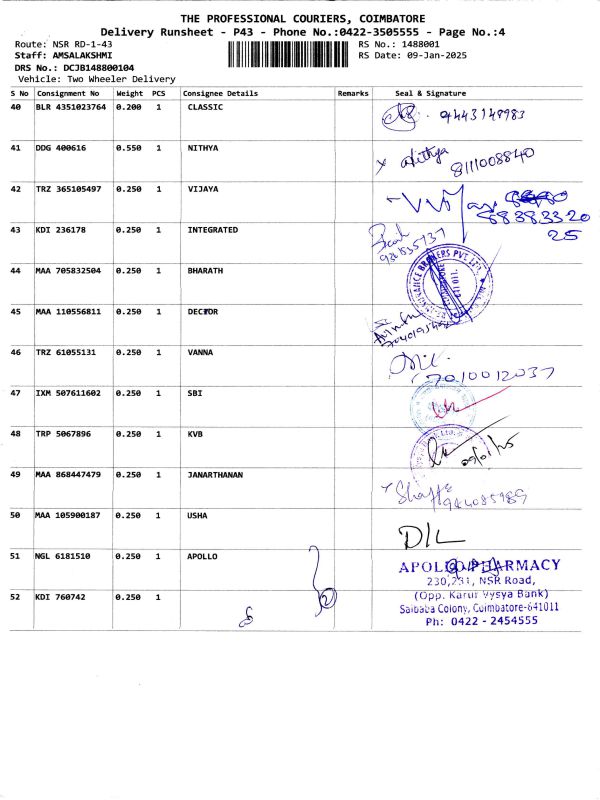 THE PROFESSIONAL COURIERS, COIMBATORE
Delivery Runsheet - P43 - Phone No.:0422-3505555 - Page No.:4
Route: NSR RD-1-43 RS No.: 1488001
Staff: AMSALAKSHMI RS Date: 09-Jan-2025
DRS No.: DCJB148800104
Vehicle: Two Wheeler Delivery
S No Consignment No Weight PCS Consignee Details Remarks Seal & Signature
40 BLR 4351023764 0.200 1 CLASSIC 9443148983
41 DDG 400616 0.550 1 NITHYA Nithya 8111008840
42 TRZ 365105497 0.250 1 VIJAYA 6838332025
43 KDI 236178 0.250 1 INTEGRATED
44 MAA 705832504 0.250 1 BHARATH
45 MAA 110556811 0.250 1 DECTOR
46 TRZ 61055131 0.250 1 VANNA 7010012037
47 IXM 507611602 0.250 1 SBI
48 TRP 5067896 0.250 1 KVB 09/01/25
49 MAA 868447479 0.250 1 JANARTHANAN
50 MAA 105900187 0.250 1 USHA D/L
51 NGL 6181510 0.250 1 APOLLO APOLLO PHARMACY
230,231, NSR Road,
52 KDI 760742 0.250 1 2 (Opp. Karur Vysya Bank)
Saibaba Colony, Coimbatore-641011
Ph: 0422 - 2454555